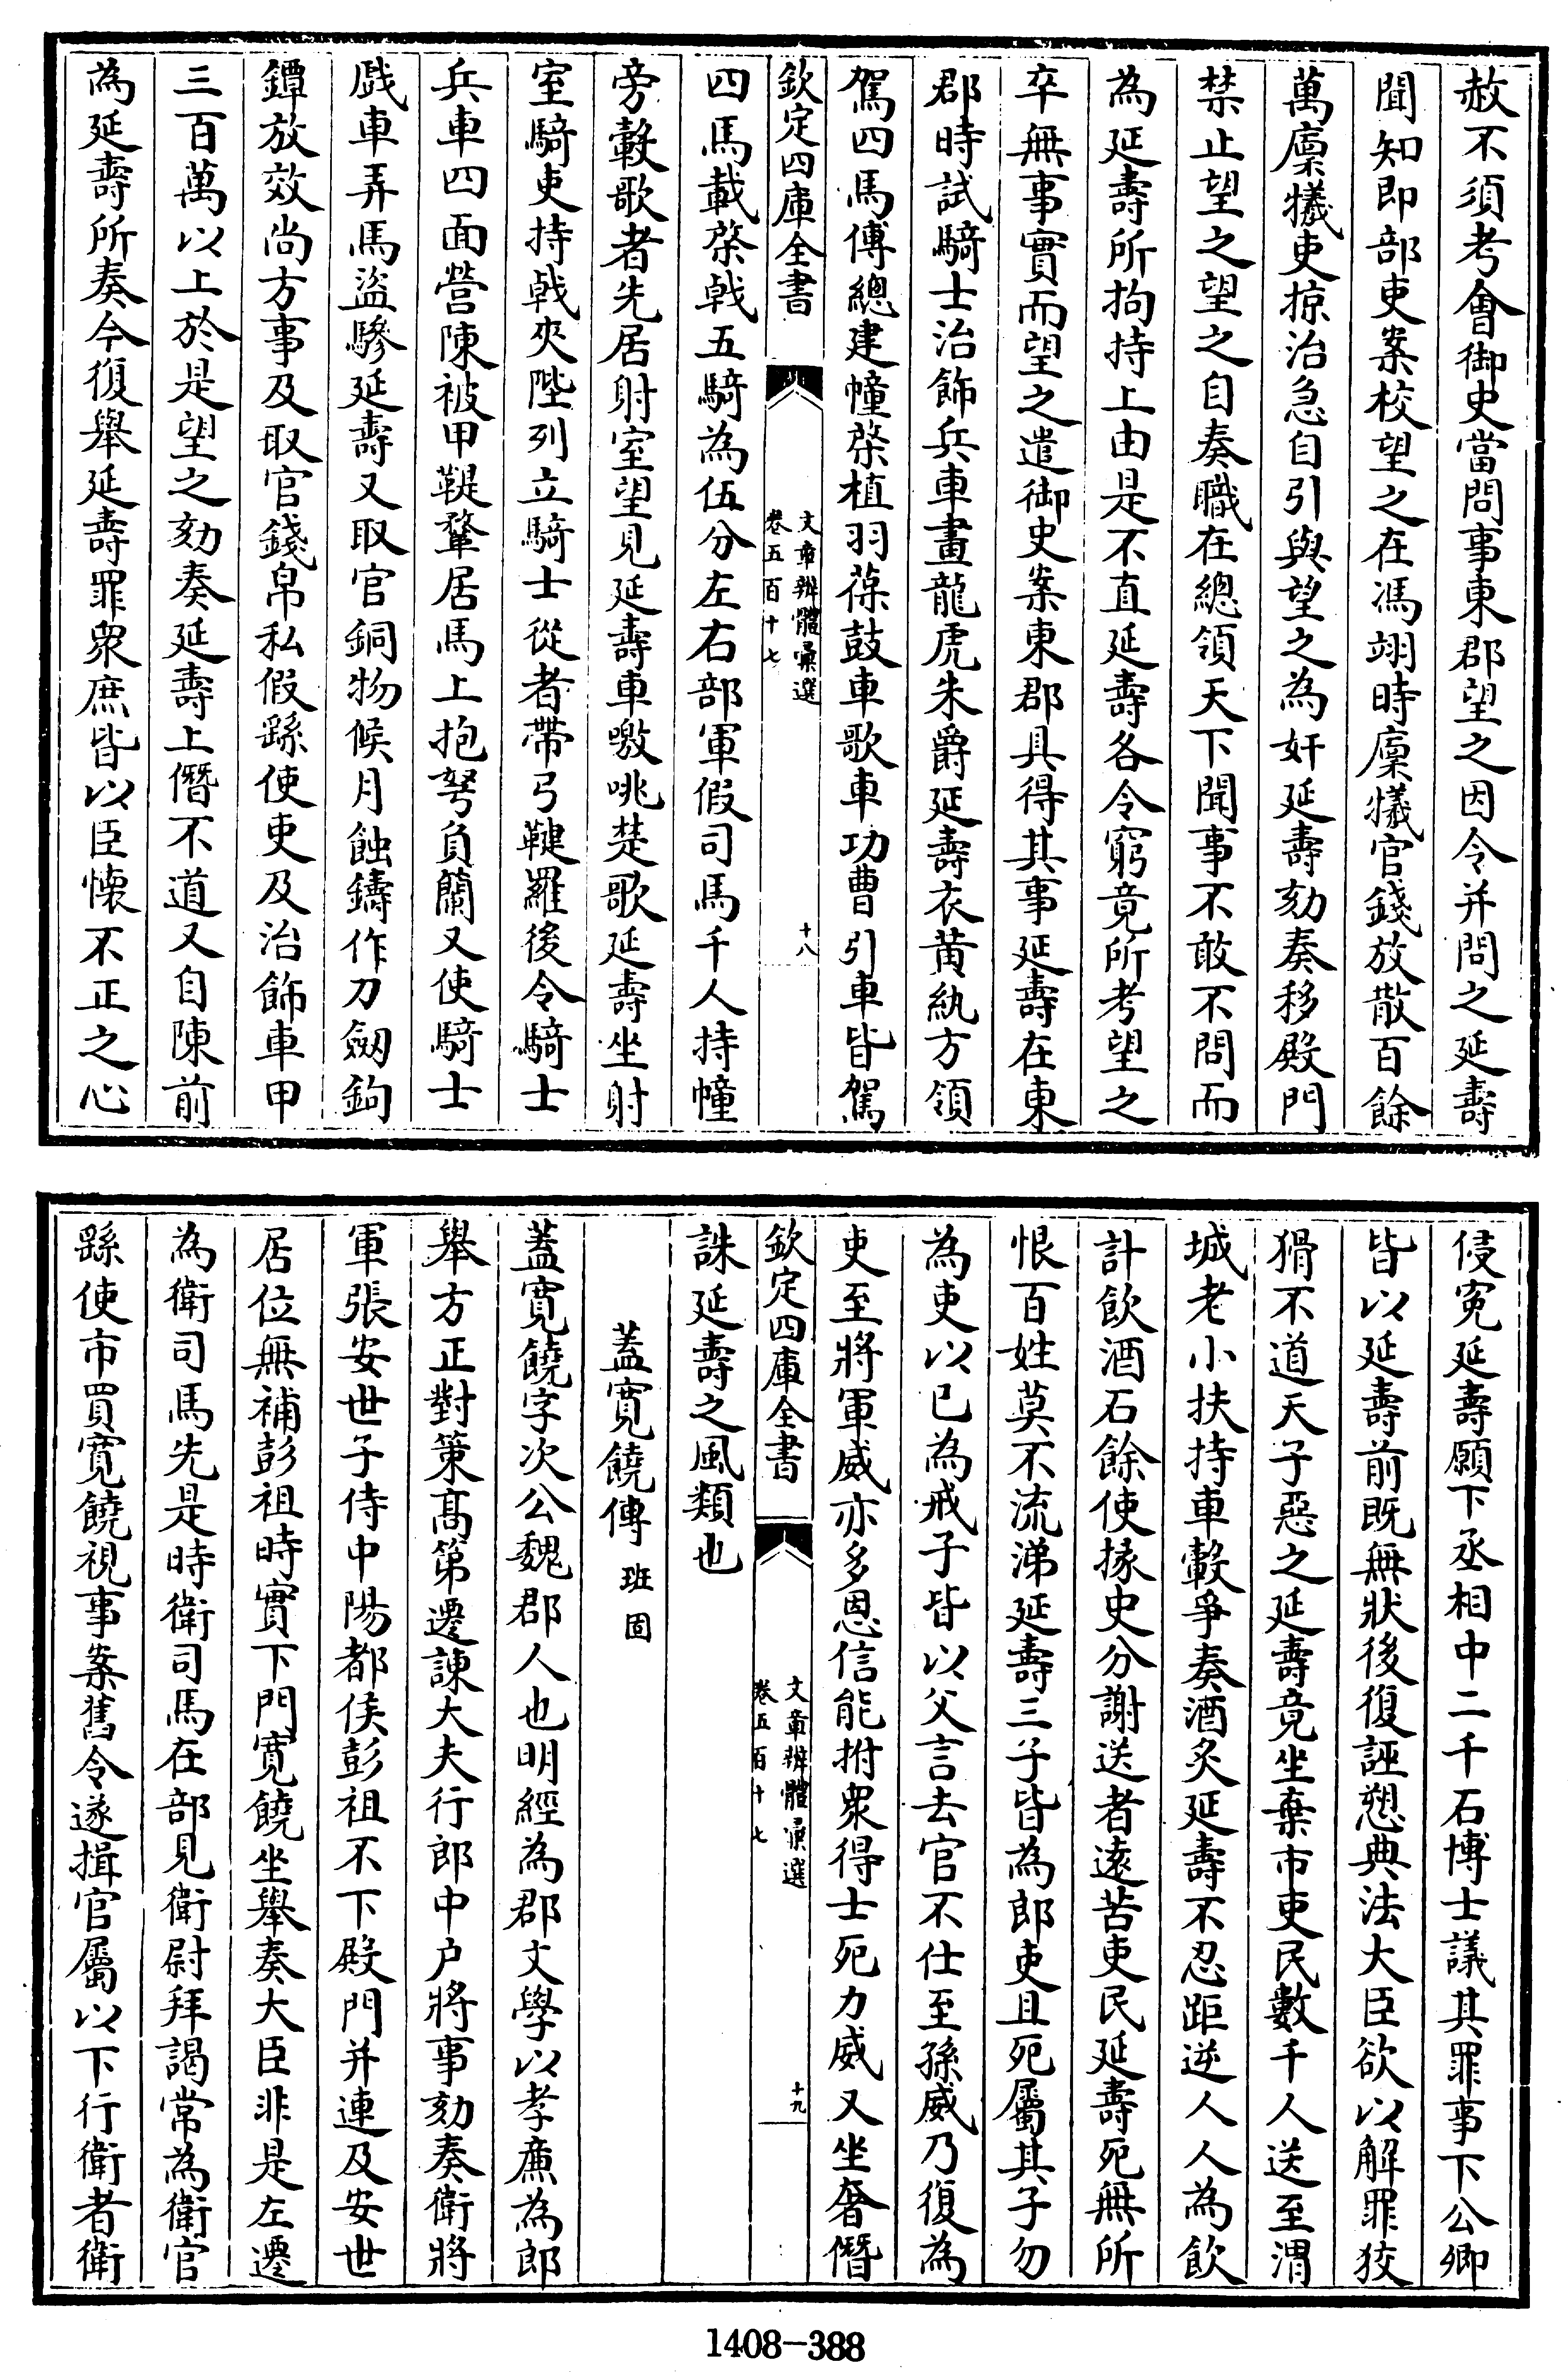 赦不須考會御史當問事東郡望之因令并問之延壽
聞知即部吏案校望之在馮翊時廩犧官錢放散百餘
萬廩犧吏掠治急自引與望之為奸延壽劾奏移殿門
禁止望之望之自奏職在總領天下聞事不敢不問而
為延壽所拘持上由是不直延壽各令窮竟所考望之
卒無事實而望之遣御史案東郡具得其事延壽在東
郡時試騎士治飾兵車畫龍虎朱爵延壽衣黃紈方領
駕四馬傅總建幢棨植羽葆鼓車歌車功曹引車皆駕
欽定四庫全書
文章辨體彙選
卷五百十七
十八
四馬載棨戟五騎為伍分左右部軍假司馬千人持幢
旁轂歌者先居射室望見延壽車噭咷楚歌延壽坐射
室騎吏持戟夾陛列立騎士從者帶弓鞬羅後令騎士
兵車四面營陳被甲鞮鞪居馬上抱弩負蘭又使騎士
戲車弄馬盜驂延壽又取官銅物候月蝕鑄作刀劔鉤
鐔放效尚方事及取官錢帛私假繇使吏及治飾車甲
三百萬以上於是望之劾奏延壽上僭不道又自陳前
為延壽所奏今復舉延壽罪衆庶皆以臣懷不正之心
侵冤延壽願下丞相中二千石博士議其罪事下公卿
皆以延壽前既無狀後復誣愬典法大臣欲以解罪狡
猾不道天子惡之延壽竟坐棄市吏民數千人送至渭
城老小扶持車轂爭奏酒炙延壽不忍距逆人人為飲
計飲酒石餘使掾史分謝送者遠苦吏民延壽死無所
恨百姓莫不流涕延壽三子皆為郎吏且死屬其子勿
為吏以已為戒子皆以父言去官不仕至孫威乃復為
吏至將軍威亦多恩信能拊衆得士死力威又坐奢僭
欽定四庫全書
文章辨體彙選
卷五百十七
十九
誅延壽之風類也
蓋寛饒傳 班固
蓋寛饒字次公魏郡人也明經為郡文學以孝廉為郎
舉方正對策高第遷諫大夫行郎中户將事劾奏衛將
軍張安世子侍中陽都侯彭祖不下殿門并連及安世
居位無補彭祖時實下門寛饒坐舉奏大臣非是左遷
為衛司馬先是時衛司馬在部見衛尉拜謁常為衛官
繇使市買寛饒視事案舊令遂揖官屬以下行衛者衛
1408-388